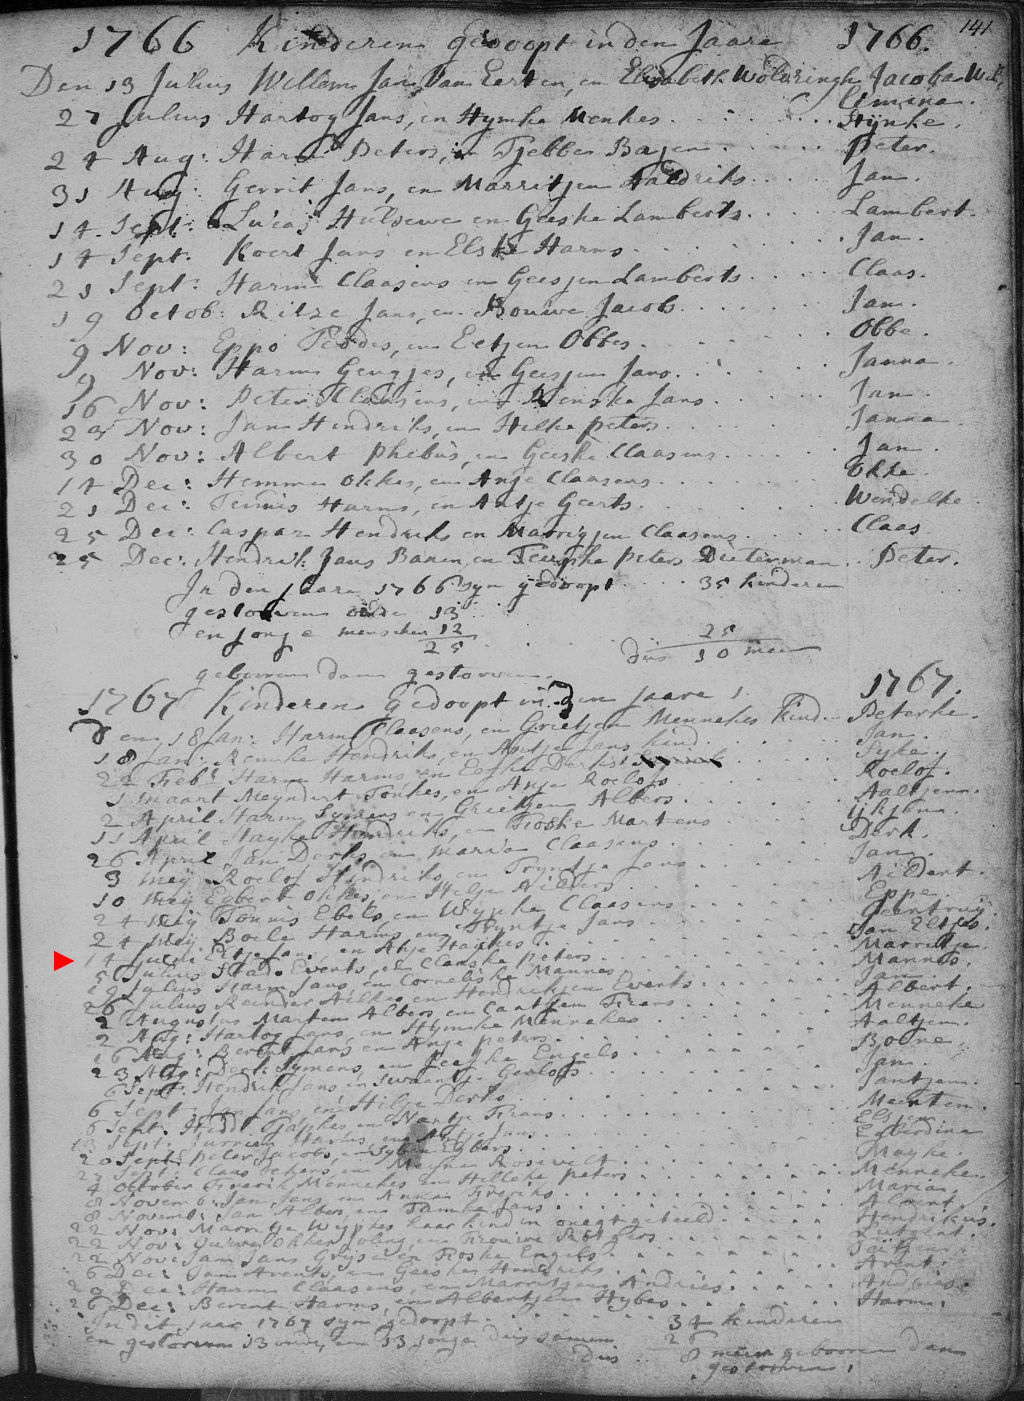 141
1766 Kinderen gedoopt in den Jaare 1766.
Den 13 Julius Willem Jan Van Eerten, en Elisabeth Wolaringh Jacoba Wil
limina.
27 Julius Hartog Jans, en Hymke Menkes Hijnke.
24 Aug: Harm Peters, en Tjebbe Bajen Peter.
31 Aug: Gerrit Jans, en Marritjen Jan.
14 Sept: Lucas Hulsewe en Geeske Lamberts Lambert.
14 Sept: Koert Jans en Elske Harms Jan.
21 Sept: Harm Claasens en Geesjen Lamberts Claas.
19 Octob: Ritze Jans, en Bouwe Jacobs Jan.
9 Nov: Eppo en Eetjen Obbes Obbe.
9 Nov: Harm Geugjes, en Geesjen Jans Janna.
16 Nov: Peter Claasens, en Renske Jans Jan.
23 Nov: Jan Hendriks, en Hilke peters Janna
30 Nov: Albert phebus, en Geeske Claasens Jan.
14 Dec: Hemme Okkes, en Anje Claasens Okke
21 Dec: Teunis Harms, en Antje Geerts Wendelke
25 Dec: Caspar Hendriks en Marrijen Claasens Claas
25 Dec: Hendrik Jans Banen, en peters Dieterman Peter.
In den jaare 1766 syn gedoopt 35 kinderen
gestorven oude 13
en jonge menschen 12 25
25 dus 10 meer
gebooren dan gestorven.
1767 Kinderen Gedoopt in den jaare 1767.
Den 18 Jan: Harm Claasens, en Grietjen Mennekes kind Peterke.
18 Jan: Remke Hendriks, en Antje Jans kind Jan.
22 Feb: Harm Harms en Eefke Derks Fyke.
1 maart Meyndert Fonkes, en Anje Roelofs Roelof.
2 April Harm Symens en Grietjen Albers Aaltjen.
11 April Hayke Hendriks, en Froske Martens Ijkjen.
26 April Jan Derks en maria Claasens Derk.
3 meij Roelof Hindriks en Tryntje Jans Jan.
10 meij Egbert Okkes, en Hilje Ailders Aildert.
24 meij Tonnis Ebels, en Wypke Claasens Eppe
24 meij Boele Harms, en Tryntje Jans Geertruy.
14 Junii Eltje Jans, en Anje Haikes Jan Eltjes.
5 Julius Stads Everts, en Claaske peters Marretje
19 Julius Harm Jans, en Corneliske Mannes Mannes.
26 Julius Reinder Ailkes en Hendrikjen Everts Jan
2 Augustus Marten Albers en Caatjen Frans Albert.
2 Aug: Hartog Jans, en Hymke Mennekes Menneke
16 Aug: Berent Jans en Anje peters Aaltjen.
23 Aug: Symens, en Feejke Engels Boene
6 Sept: Hendrik Jans en Swaantje Gerlofs Jan
6 Sept: Jan Jans, en Hilje Derks Jantjen.
6 Sept: Hidde Tjapkes en Nantje Frans Merten.
13 Sept: Jurrien Harms, en Antje Jans Elsjen
20 Sept: Peter Jacobs en Sybina Egbers Egberdina
Sept: Claas en Meyna Roseveldt Mayke
4 October Frerik Mennekes en Hilleke peters Menneke
8 Novemb: Jan Jans, en Anna Freriks Maria.
8 Novemb: Jan Albers, en Tamke Jans Albert
22 Nov: Marretje Wypkes haar kind in onegt geteeld Hendrikus.
22 Nov: Jurrien Okkes Joling en Trouwe Rotgers
22 Nov: Jan Jans Gryse en Froske Engels
6 Dec: Jan Arents, en Geeske Hendriks Arent.
20 Dec: Harm Claasens, en Marretjen Andries Andries.
26 Dec: Berent Harms, en Albertjen Hybes Harm.
In dit jaar 1767 syn gedoopt 34 kinderen
en gestorven 13 oude, en 13 jonge dus samen 26
dus 8 meer gebooren dan
gestorven.